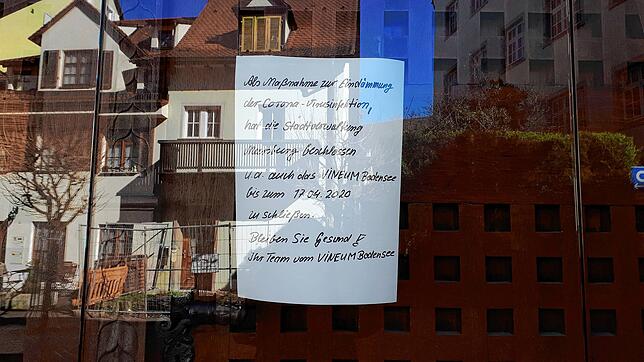 Als Maßnahme zur Eindämmung
der Corona-Virusinfektion,
hat die Stadtverwaltung
Meersburg beschlossen
u.a. auch das VINEUM Bodensee
bis zum 17.04.2020
zu schließen.
Bleiben Sie Gesund!
Ihr Team vom VINEUM Bodensee